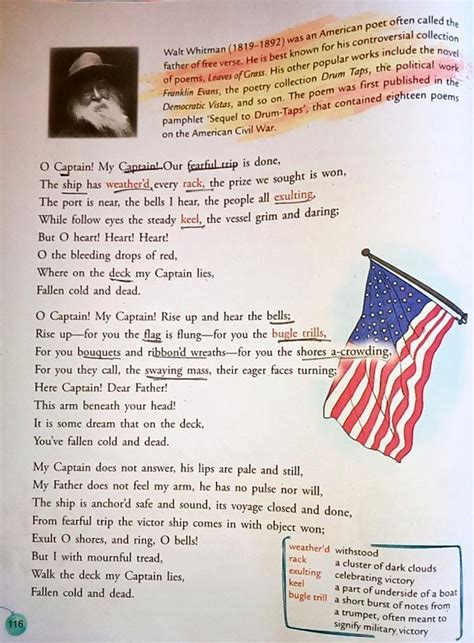 Walt Whitman (1819-1892) was an American poet often called the
father of free verse. He is best known for his controversial collection
of poems, Leaves of Grass. His other popular works include the novel
Franklin Evans, the poetry collection Drum Taps, the political work
Democratic Vistas, and so on. The poem was first published in the
pamphlet 'Sequel to Drum-Taps', that contained eighteen poems
on the American Civil War.
O Captain! My Captain! Our fearful trip is done,
The ship has weather'd every rack, the prize we sought is won,
The port is near, the bells I hear, the people all exulting,
While follow eyes the steady keel, the vessel grim and daring;
But O heart! Heart! Heart!
O the bleeding drops of red,
Where on the deck my Captain lies,
Fallen cold and dead.
O Captain! My Captain! Rise up and hear the bells;
Rise up—for you the flag is flung—for you the bugle trills,
For you bouquets and ribbon'd wreaths—for you the shores a-crowding,
For you they call, the swaying mass, their eager faces turning;
Here Captain! Dear Father!
This arm beneath your head!
It is some dream that on the deck,
You've fallen cold and dead.
My Captain does not answer, his lips are pale and still,
My Father does not feel my arm, he has no pulse nor will,
The ship is anchor'd safe and sound, its voyage closed and done,
From fearful trip the victor ship comes in with object won;
Exult O shores, and ring, O bells!
But I with mournful tread,
Walk the deck my Captain lies,
Fallen cold and dead.
weather'd withstood
rack a cluster of dark clouds
exulting celebrating victory
keel a part of underside of a boat
bugle trill a short burst of notes from
a trumpet, often meant to
signify military victory
116